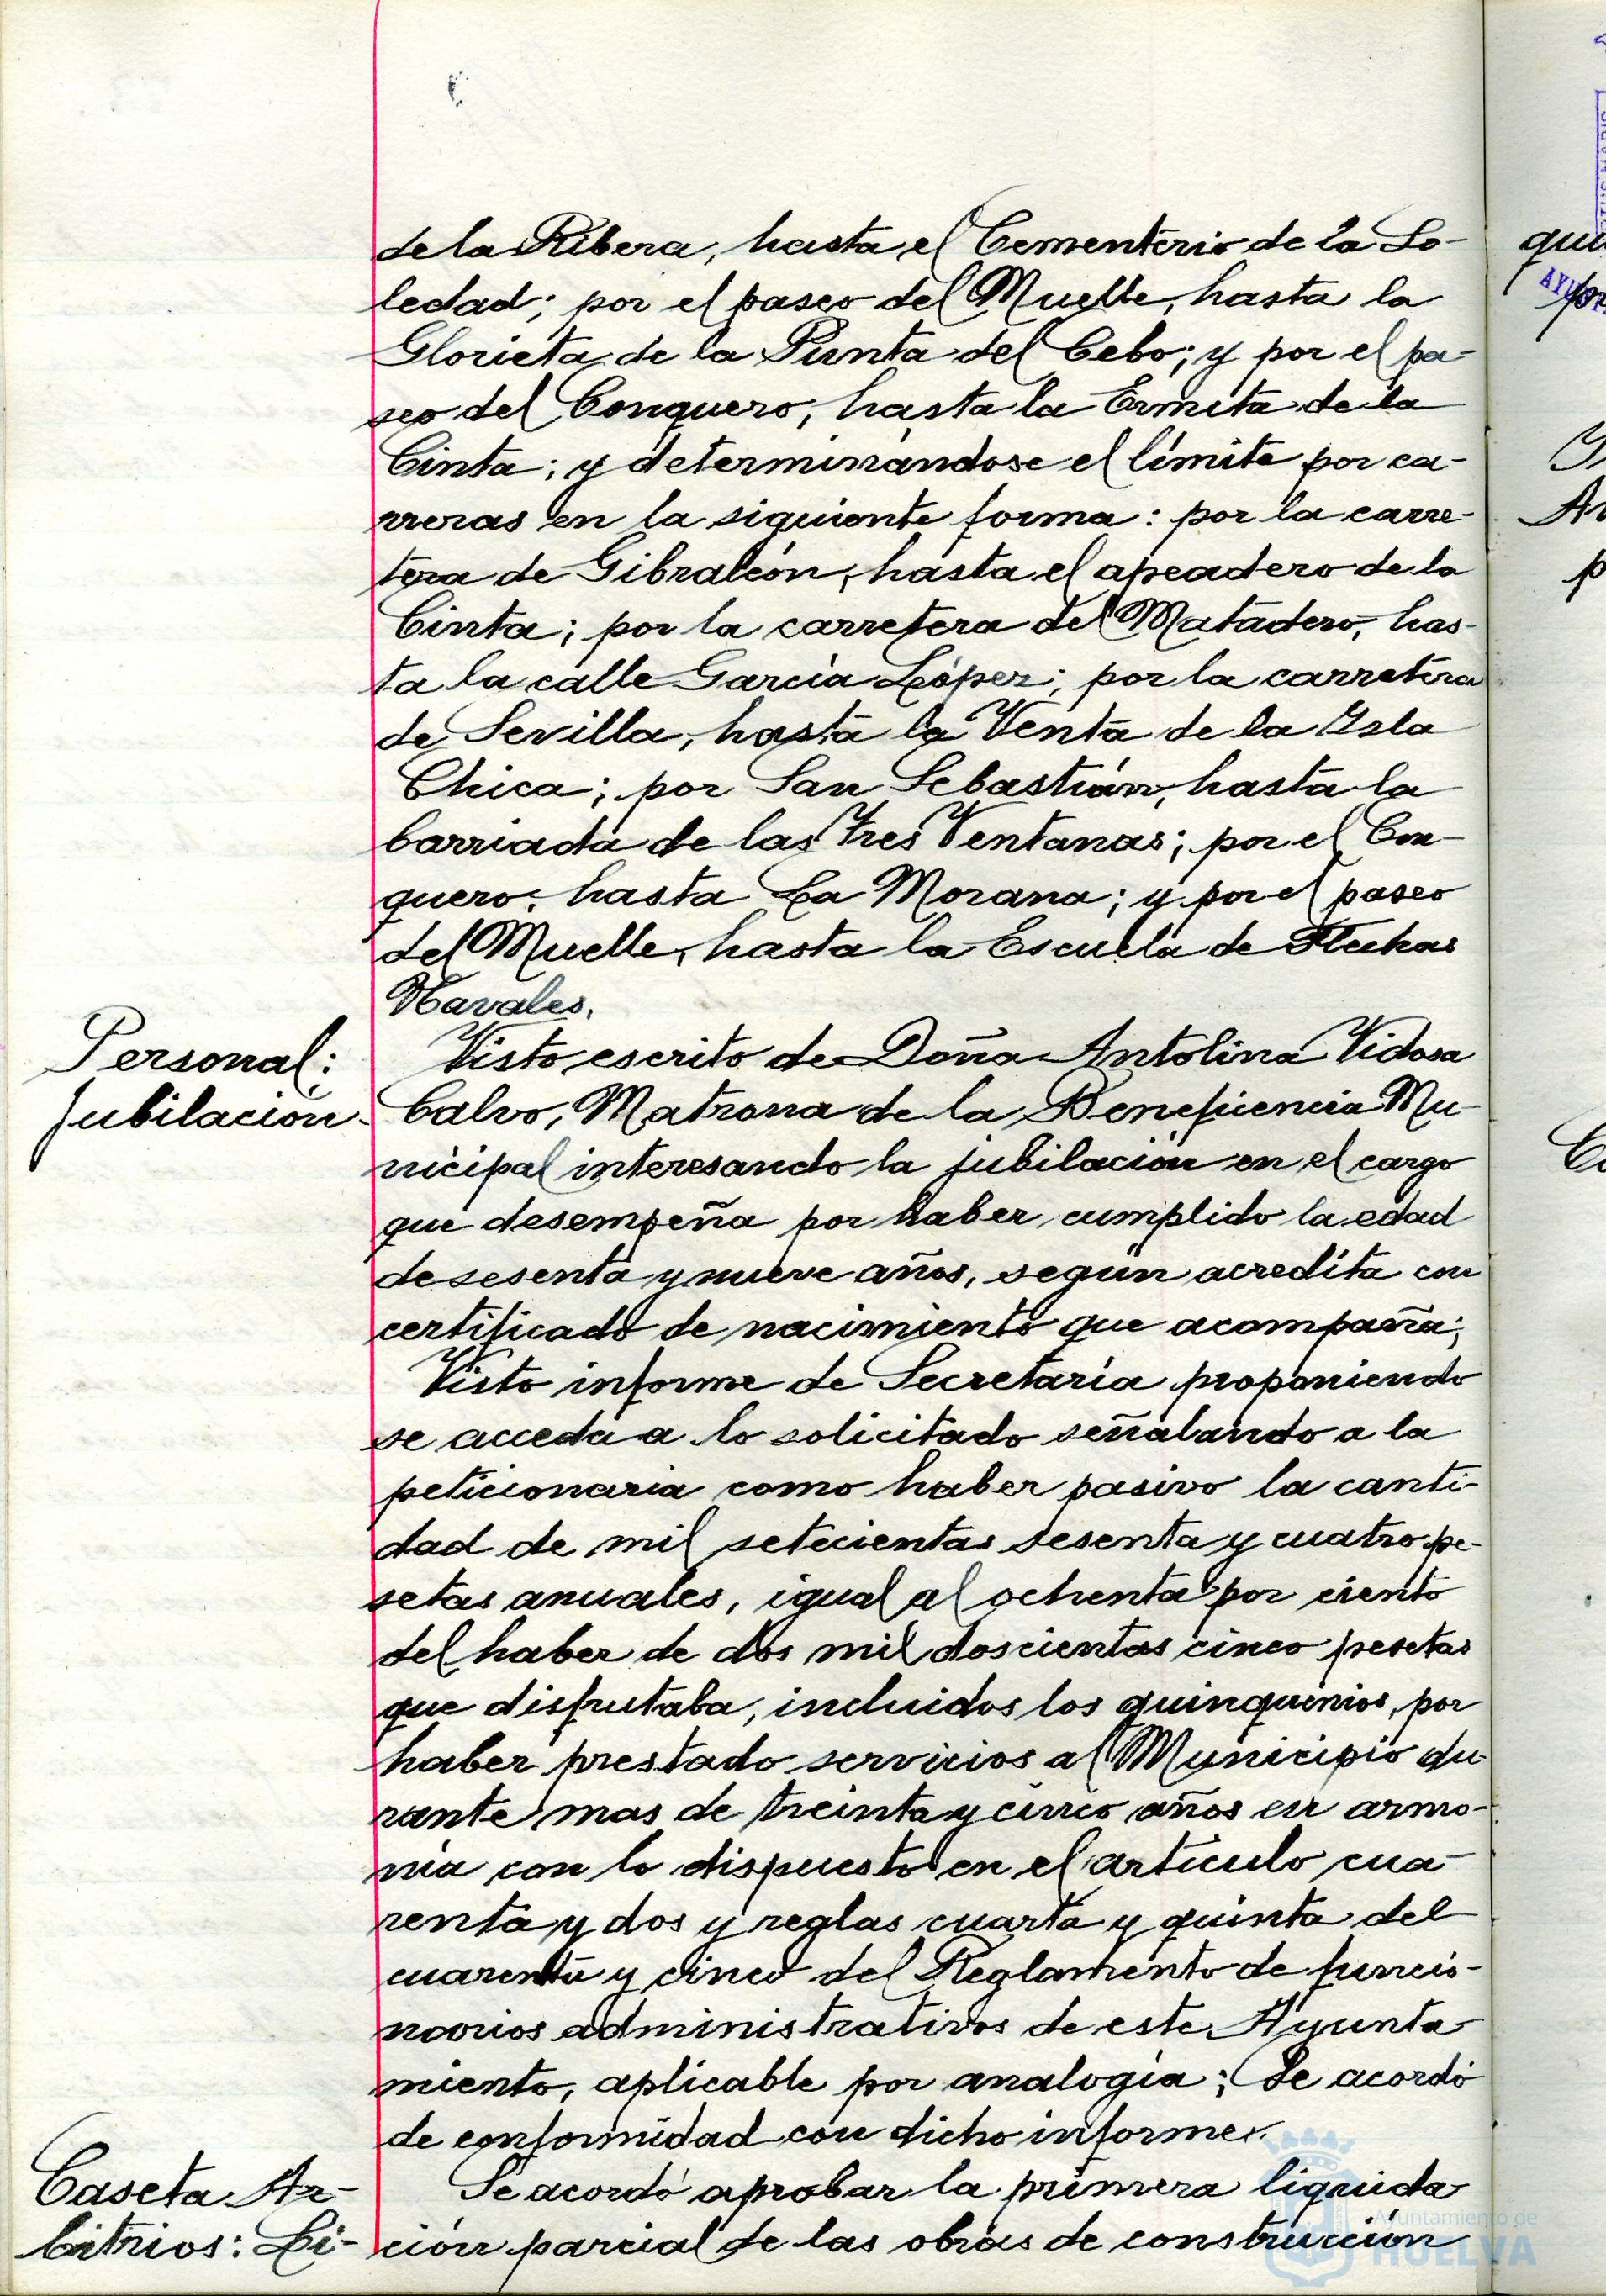 de la Ribera, hasta el Cementerio de la So-
ledad; por el paseo del Muelle, hasta la
Glorieta de la Punta del Cebo; y por el pa-
seo del Conquero, hasta la Ermita de la
Cinta; y determinándose el límite por ca-
rreras en la siguiente forma: por la carre-
tera de Gibraleón, hasta el apeadero de la
Cinta; por la carretera del Matadero, has-
ta la calle García López; por la carretera
de Sevilla, hasta la Venta de la Isla
Chica; por San Sebastián, hasta la
barriada de las Tres Ventanas; por el Con-
quero, hasta La Morana; y por el paseo
del Muelle, hasta la Escuela de Flechas
Navales.
Personal:
Jubilación
Visto escrito de Doña Antolina Vidosa
Calvo, Matrona de la Beneficencia Mu-
nicipal interesando la jubilación en el cargo
que desempeña por haber cumplido la edad
de sesenta y nueve años, según acredita con
certificado de nacimiento que acompaña;
Visto informe de Secretaría proponiendo
se acceda a lo solicitado señalando a la
peticionaria como haber pasivo la canti-
dad de mil setecientas sesenta y cuatro pe-
setas anuales, igual al ochenta por ciento
del haber de dos mil doscientas cinco pesetas
que disfrutaba, incluidos los quinquenios, por
haber prestado servicios al Municipio du-
rante mas de treinta y cinco años en armo-
nía con lo dispuesto en el artículo cua-
renta y dos y reglas cuarta y quinta del
cuarenta y cinco del Reglamento de funcio-
narios administrativos de este Ayunta-
miento, aplicable por analogía; Se acordó
de conformidad con dicho informe.
Caseta Ar-
bitrios: Li-
Se acordó aprobar la primera liquida-
ción parcial de las obras de construcción
Ayuntamiento de
HUELVA